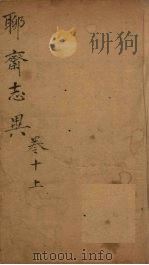 聊齋志異
卷十上
研狗
mtoou.info